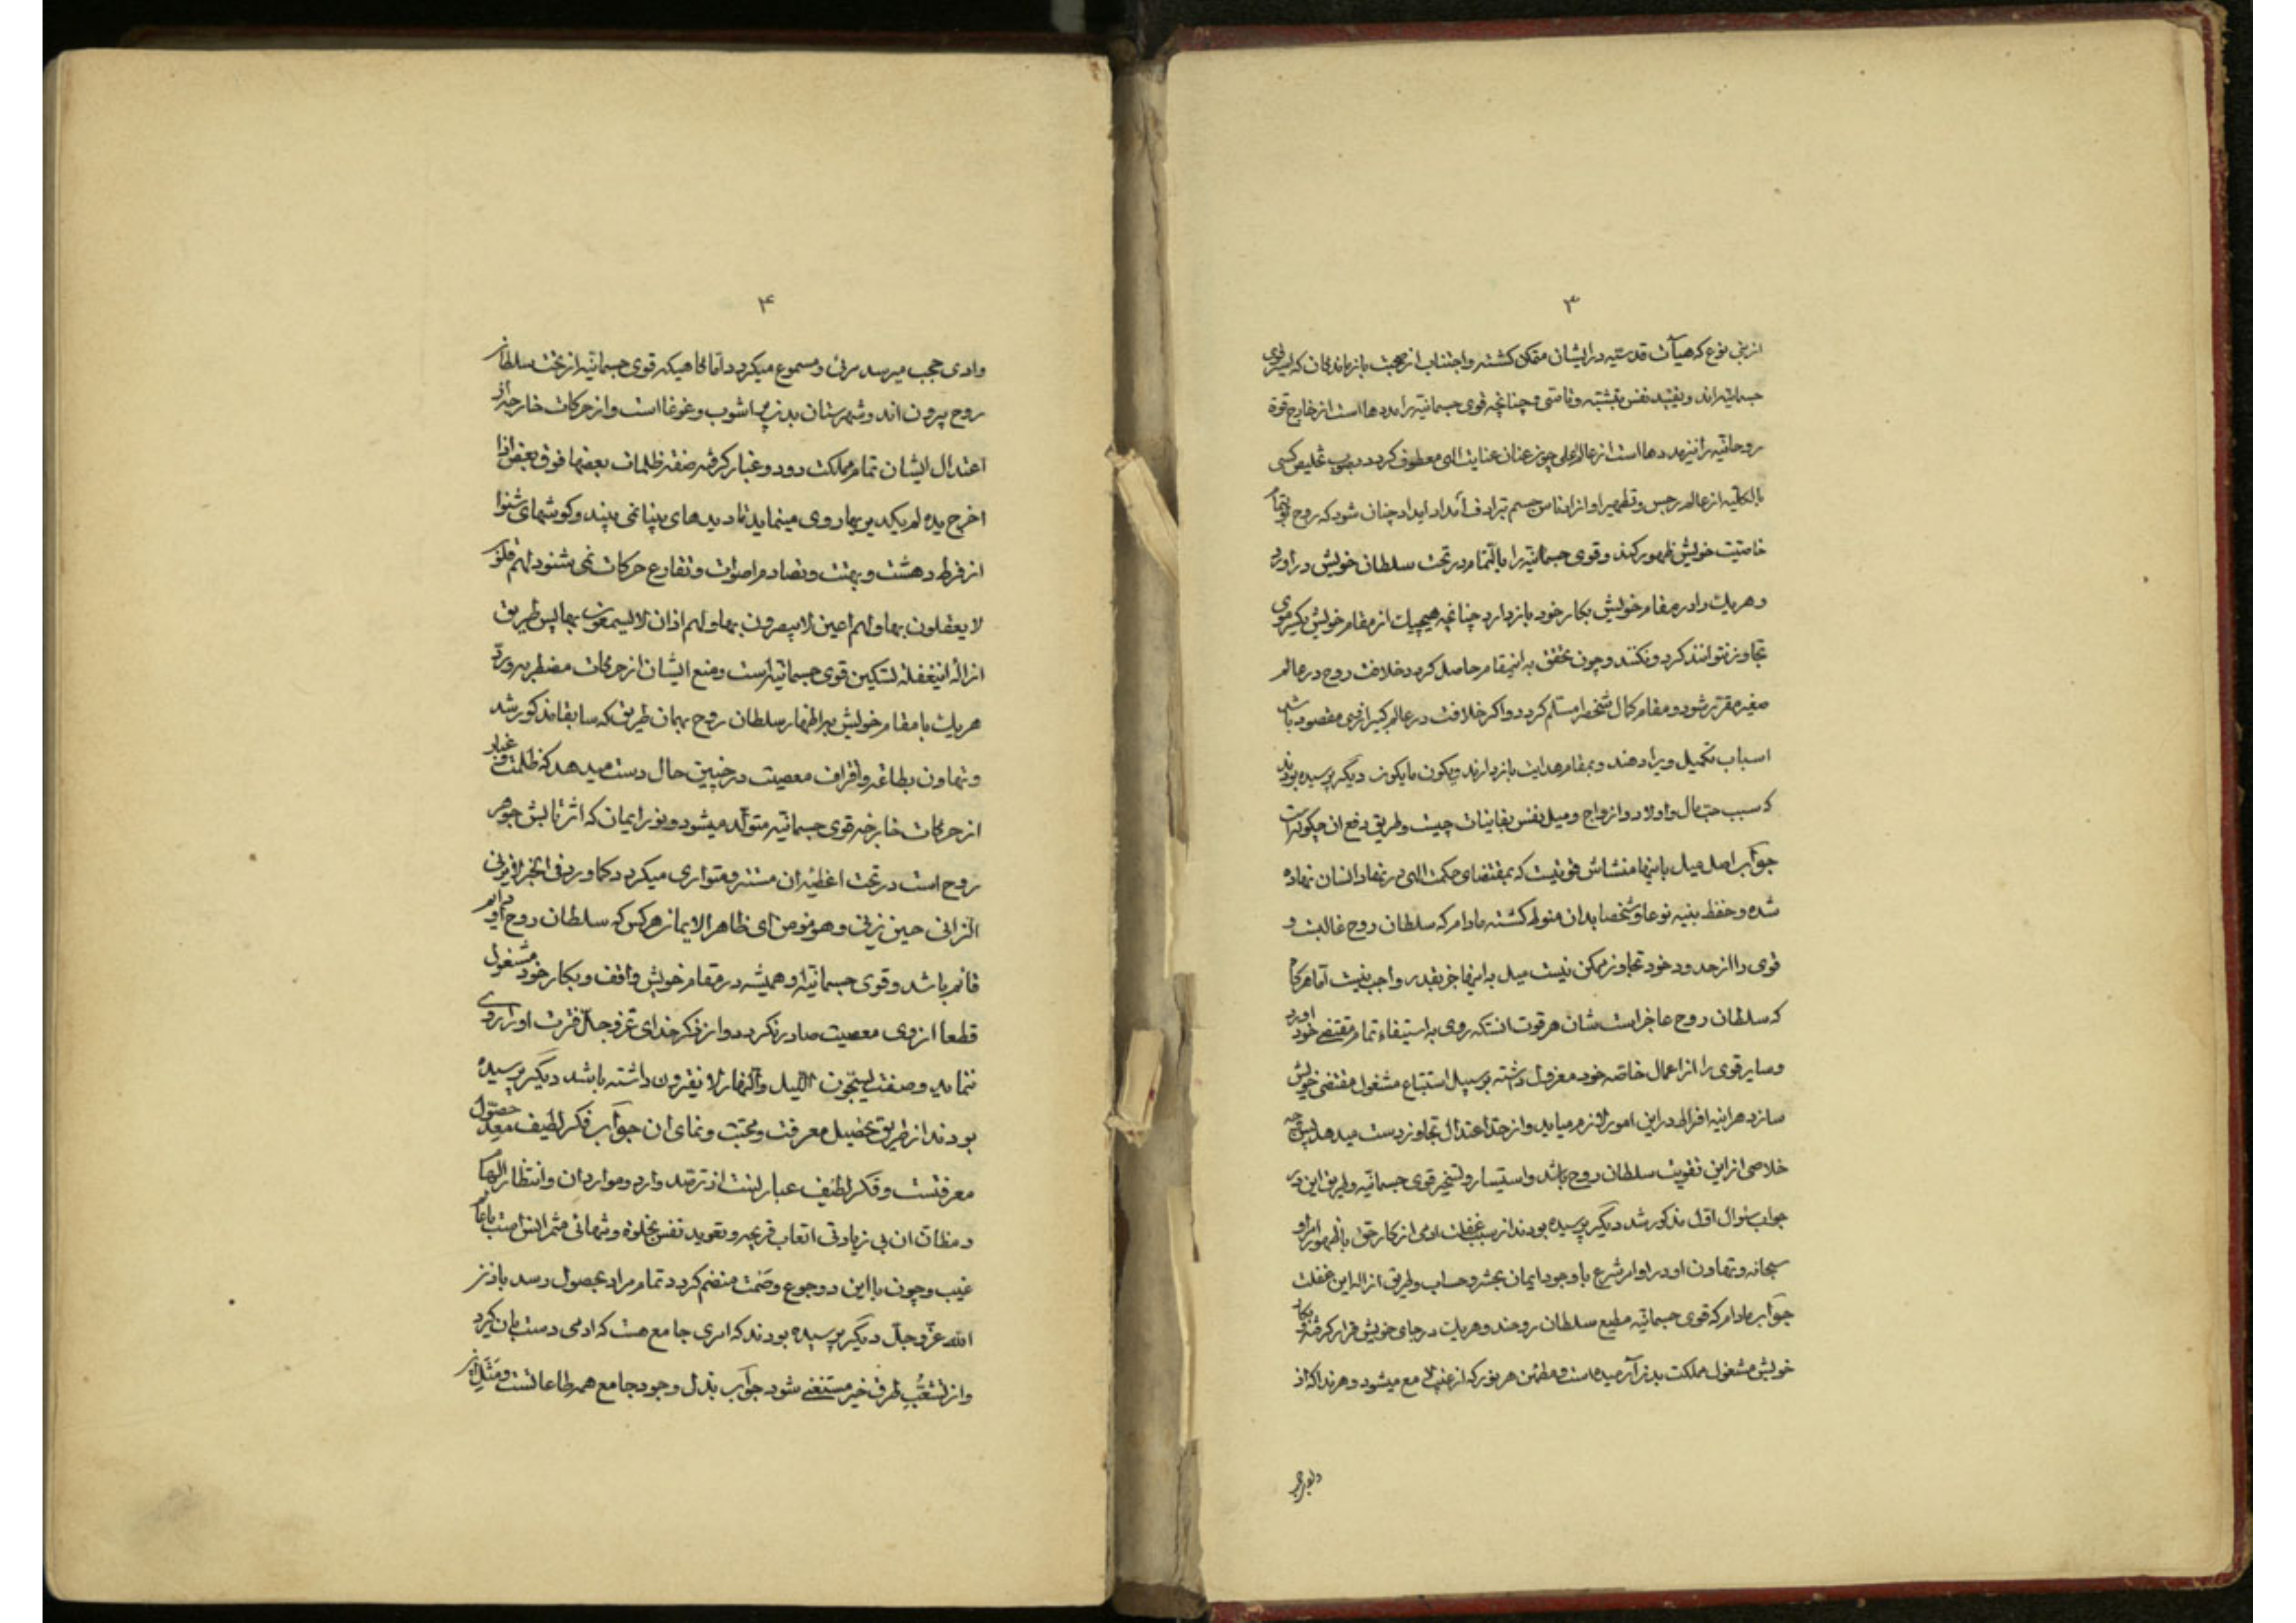 ۳
ازین نوع که هیآت قدسیه در ایشان متمکن کشته و اجتناب از صحبت بازماندکان که اسیر قوی
جسمانیه‌اند و بقید نفس و چنانچه قوی جسمانیه را مددها است از خارج قوة
روحانیه را نیز مددها است از عالم اعلی چون عنان عنایت الهی معطوف کردد بصوب تخلیص کسی
بالکلیه از عالم رجس و تطهیر او از ادناس جسم بترادف امداد چنان شود که روح بتمام
خاصیت خویش ظهور کند و قوی جسمانیه را بالتمام در تحت سلطان خویش دراورد
و هریک را در مقام خویش بکار خود بازدارد چنانچه هیچیک از مقام خویش یکسر موی
تجاوز نتوانند کرد و نکنند و چون تحقق به اینمقام حاصل کردد خلافت روح در عالم
صغیر مقرر شود و مقام کمال شخص را مسلم کردد و اکر خلافت در عالم کبیر از وی مقصود باشد
اسباب تکمیل ویرا دهند و بمقام هدایت بازدارند و یکون ما یکون دیکر پرسیده بودند
که سبب حب مال و اولاد و ازواج و میل نفس بفانیات چیست و طریق دفع ان چکونه است
جواب اصل میل باینها منشاش قوتیست که بمقتضای حکمت الهی در نهاد انسان نهاده
شده و حفظ بنیه نوعا و شخصا بدان منوط کشته مادام که سلطان روح غالبست و
قوی را از حدود خود تجاوز ممکن نیست میل به اینها جز بقدر واجب نیست اما هرکاه
که سلطان روح عاجز است شان هر قوت انستکه روی به استیفاء تمام مقتضی خود اورد
و سایر قوی را از اعمال خاصه خود معزول داشته بر سبیل استتباع مشغول مقتضی خویش
سازد هراینه افراط در این امور لازم میاید و از حد اعتدال تجاوز دست میدهد پس
خلاصی از این تقویت سلطان روح باشد و تسخیر قوی جسمانیه و طریق این در
جواب سئوال اول مذکور شد دیکر پرسیده بودند از سبب غفلت ادمی از کار حق با ظهور امر او
سبحانه و تهاون او در اوامر شرع با وجود ایمان بحشر و حساب و طریق ازاله این غفلت
جواب مادام که قوی جسمانیه مطیع سلطان روحند و هریک در جای خویش قرار کرفته و بکار
خویش مشغول مملکت بدن آرمیده است و مطمئن هر نور که از غیب لامع میشود و هر ندا که از
وادی حجب
۴
وادی حجب میرسد مرئی و مسموع میکردد اما کاهیکه قوی جسمانیه از تحت سلطان
روح بیرون اند و شهرستان بدن پر اشوب و غوغا است و از حرکات خارجه از
اعتدال ایشان تمام مملکت دود و غبار کرفته صفة ظلمات بعضها فوق بعض اذا
اخرج یده لم یکد یریها روی مینماید نه دیدهای بینا می بیند و کوشهای شنوا
از فرط دهشت و بهت و تصادم اصوات و تقارع حرکات نمی شنود لهم قلوب
لا یعقلون بها و لهم اعین لا یبصرون بها و لهم اذان لا یسمعون بها پس طریق
ازاله اینغفله تسکین قوی جسمانیه است و منع ایشان از حرکات مضطربه و رد
هریک با مقام خویش براظهار سلطان روح بهمان طریق که سابقا مذکور شد
و تهاون بطاعه و اقتراف معصیت در چنین حال دست میدهد که ظلمت و غبار
از حرکات خارجه قوی جسمانیه متولد میشود و نور ایمان که اثر تابش جوهر
روح است در تحت اغطیه ان مستتر و متواری میکردد کما ورد فی الخبر لا یزنی
الزانی حین یزنی و هو مومن ای ظاهر الایمان هر کس که سلطان روح او دایم
قائم باشد و قوی جسمانیه او همیشه در مقام خویش واقف و بکار خود مشغول
قطعا از وی معصیت صادر نکردد و از ذکر خدای عز و جل فترت او را روی
ننماید و صفت یسبحون اللیل و النهار لا یفترون داشته باشد دیکر پرسیده
بودند از طریق تحصیل معرفت و محبت و نمای ان جواب فکر لطیف معد حصول
معرفتست و فکر لطیف عبارتست از ترصد وارد و موارد ان و انتظار الهام
و مظان ان بی زیادتی اتعاب قریحه و تعوید نفس بخلوة و تنهائی مثمر انس است با عالم
غیب و چون با این دو جوع و صمت منضم کردد تمام مراد بحصول رسد باذن
الله عز و جل دیکر پرسیده بودند که امری جامع هست که ادمی دست بان کیرد
و از تشعب طرق خیر مستغنی شود جواب بذل وجود جامع همه طاعاتست و مثل